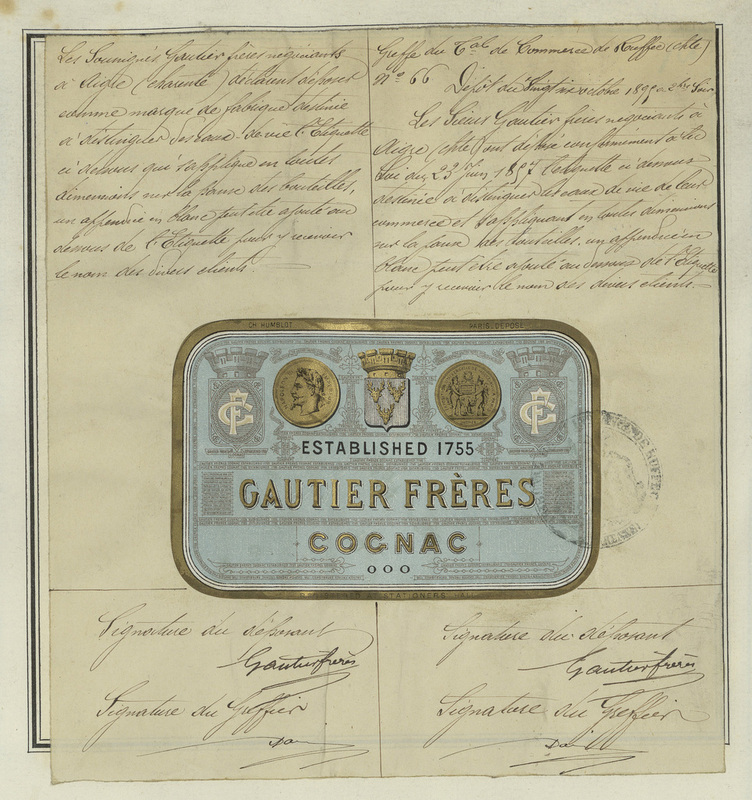 Les Soussignés Gautier frères négociants
à Aigre (charente) déclarent déposer
comme marque de fabrique destinée
à distinguer ses eaux-de-vie l'Etiquette
ci dessous qui s'applique en toutes
dimensions sur la panse des bouteilles,
un appendice en blanc peut être ajouté au
dessous de l'Etiquette pour y recevoir
le nom des divers clients.
Greffe du Tal de Commerce de Ruffec (chte)
No 66 Dépôt du Vingt six octobre
Les Sieurs Gautier frères négociants à
Aigre (chte) ont déposé conformément à la
Loi du 23 Juin 1857 l'étiquette ci dessous
destinée à distinguer les eaux de vie de leur
commerce et s'appliquant en toutes dimensions
sur la panse des bouteilles, un appendice en
blanc peut être ajouté au dessous de l'Etiquette
pour y recevoir le nom des divers clients.
CH. HUMBLOT PARIS. DÉPOSÉ
GF
GF
ESTABLISHED 1755
GAUTIER FRÈRES
COGNAC
OOO
AT STATIONERS HALL
Signature du déposant
Gautier frères
Signature du Greffier
Signature du déposant
Gautier frères
Signature du Greffier